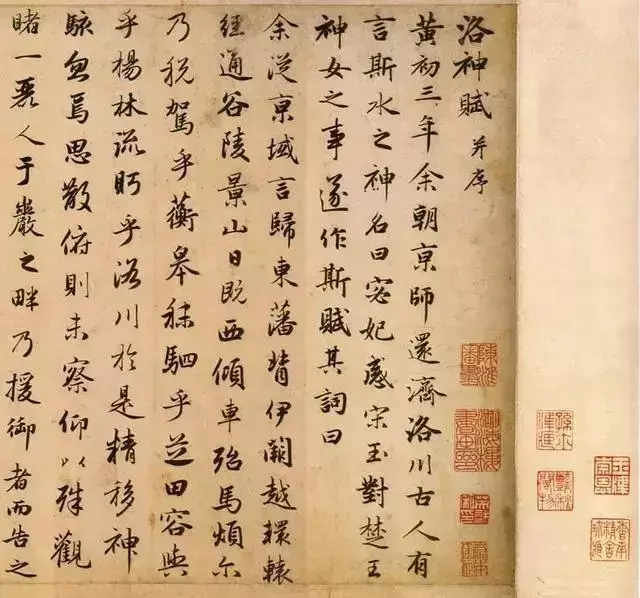 洛神賦 并序
黃初三年余朝京師還濟洛川古人有
言斯水之神名曰宓妃感宋玉對楚王
神女之事遂作斯賦其詞曰
余從京域言歸東藩背伊闕越轘轅
經通谷陵景山日既西傾車殆馬煩尔
乃稅駕乎蘅皋秣駟乎芝田容與
乎楊林流眄乎洛川於是精移神
駭忽焉思散俯則未察仰以殊觀
睹一麗人于巖之畔乃援御者而告之